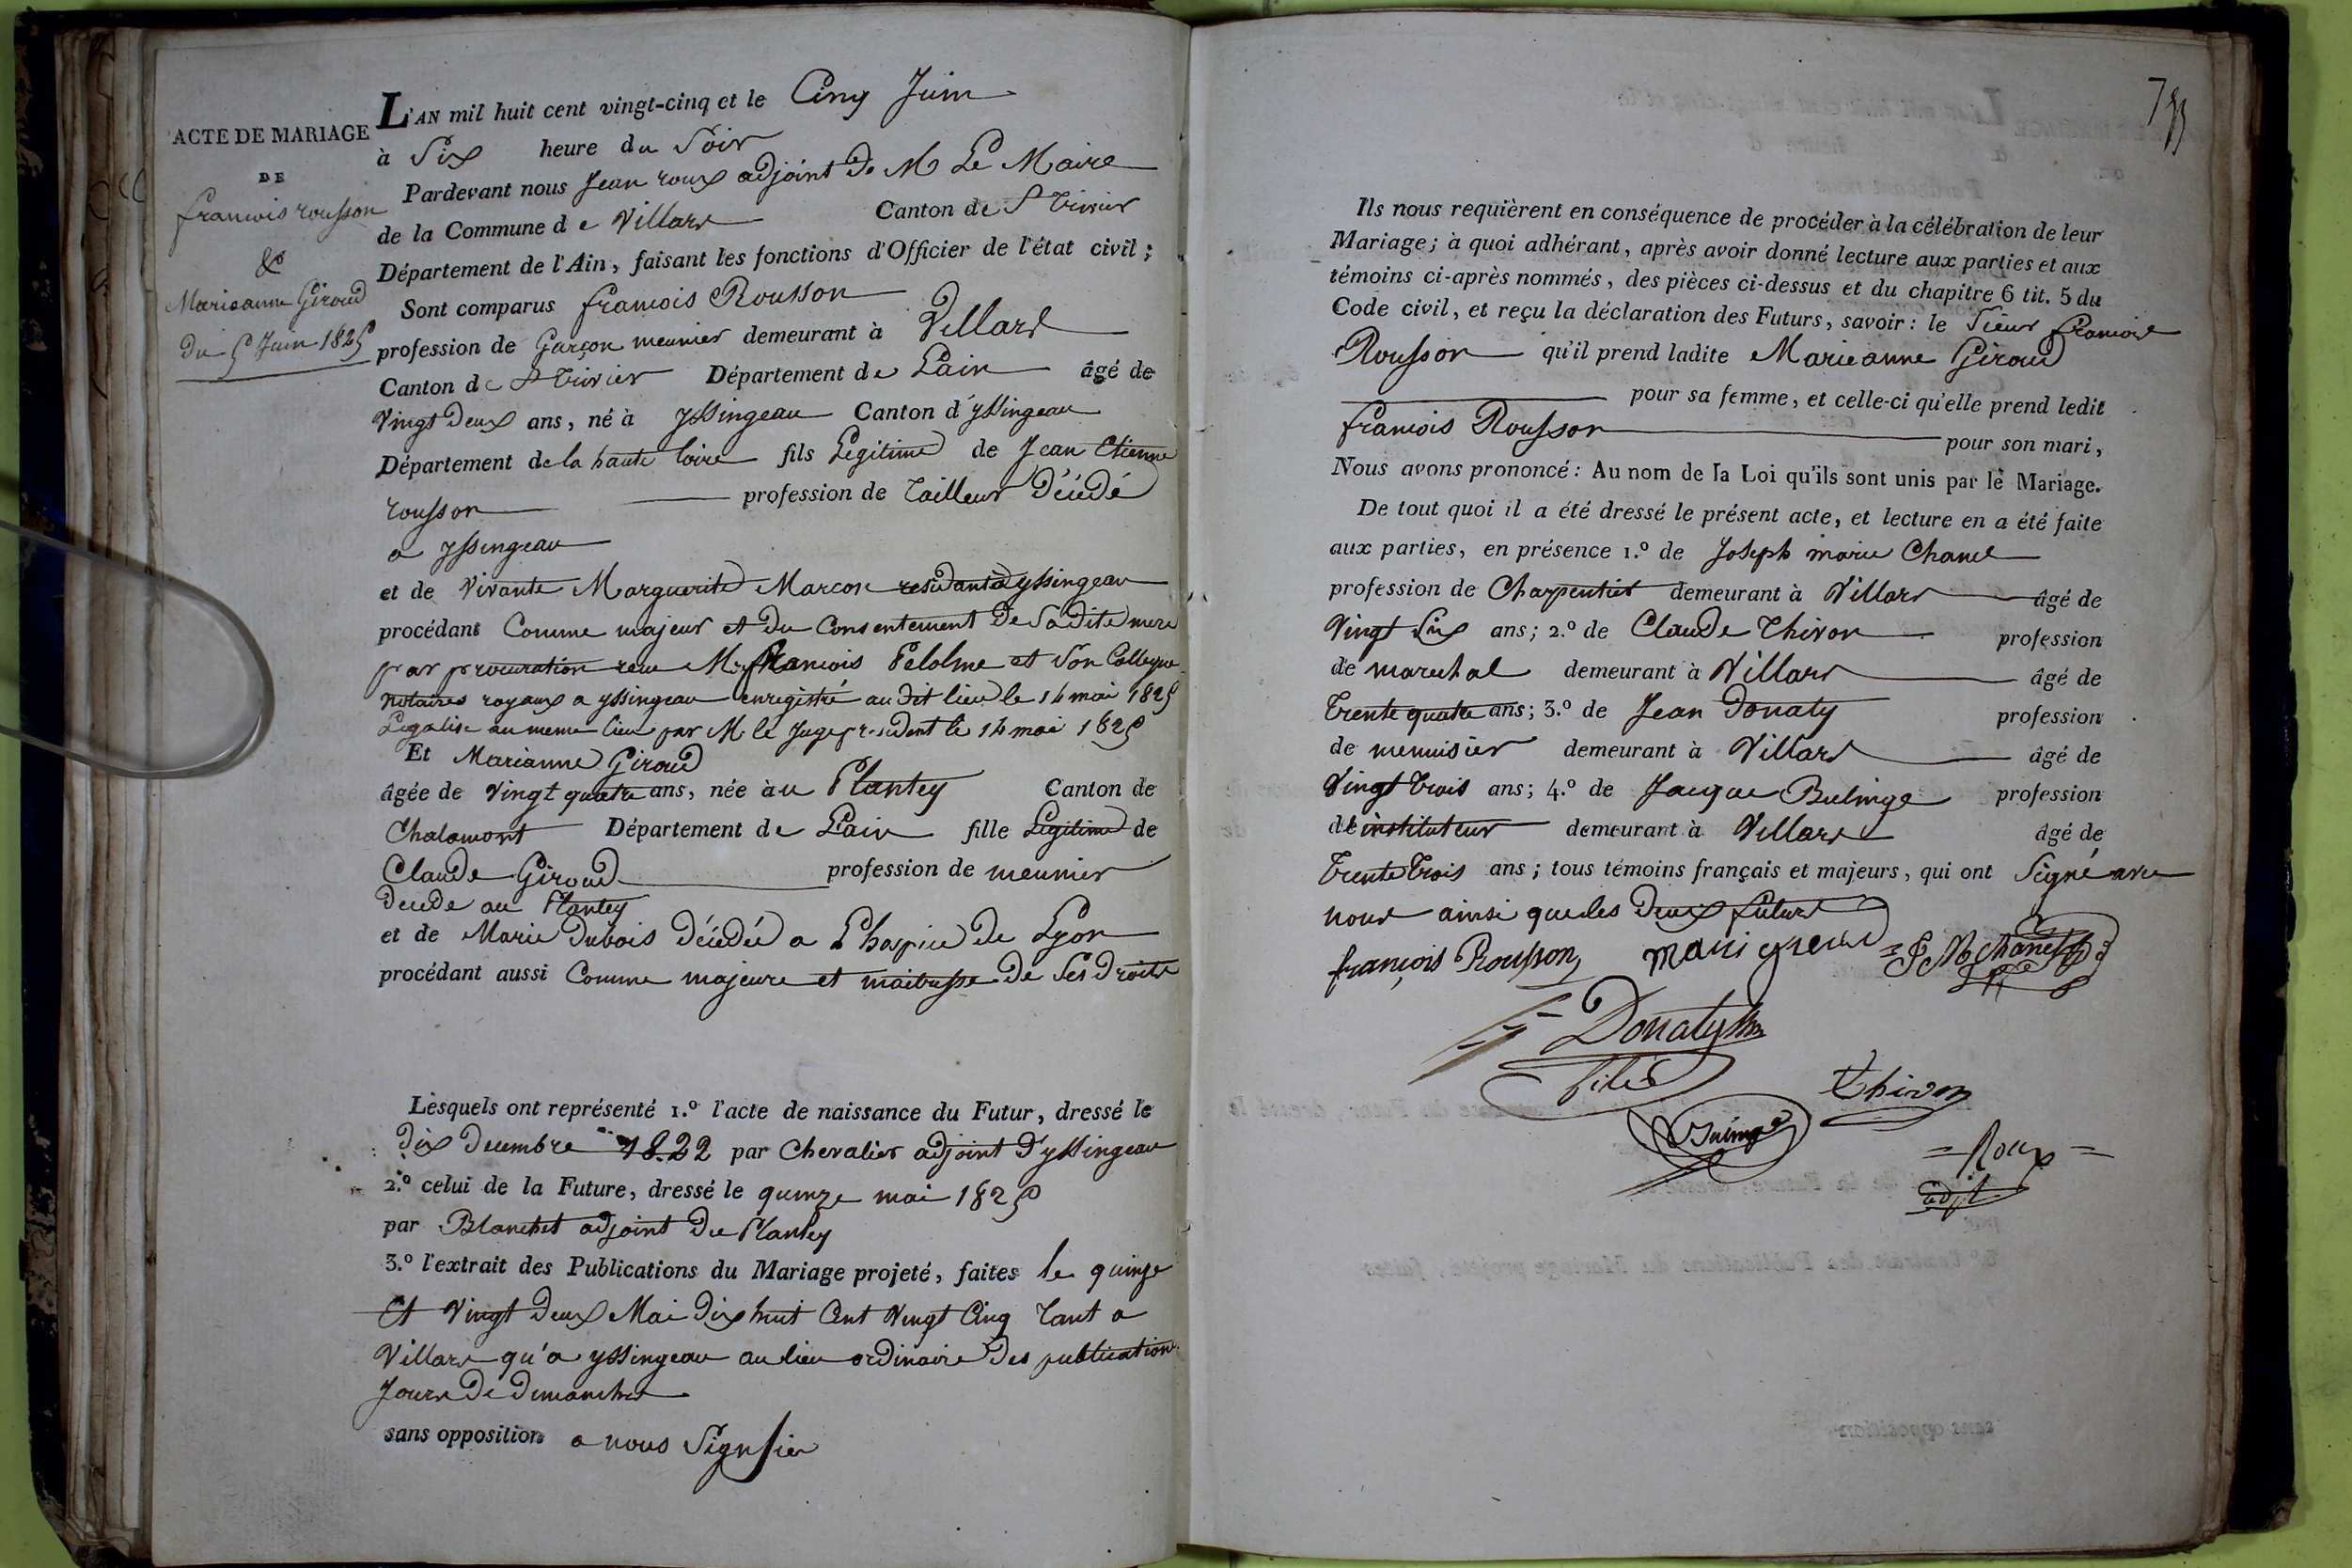 ACTE DE MARIAGE
DE
francois rousson
&
Marieanne Giroud
Du 5 Juin 1825
L'AN mil huit cent vingt-cinq et le Cinq Juin
à Six heure du Soir
Pardevant nous Jean roux adjoint De M Le Maire
de la Commune de Villars Canton de St Trivier
Département de l'Ain, faisant les fonctions d'Officier de l'état civil;
Sont comparus francois Rousson
profession de Garçon meunier demeurant à Villars
Canton de St Trivier Département de L'ain âgé de
Vingt Deux ans, né à yssingeau Canton d'yssingeau
Département de la haute loire fils Legitime de Jean Etienne
rousson profession de Tailleur Décédé
a yssingeau
et de Vivante Marguerite Marcon residant a yssingeau
procédant Comme majeur et du Consentement De Sadite mere
par procuration reçue Me francois Pelolme et Son Collegue
notaires royaux a yssingeau enregistré au Dit lieu le 14 mai 1825
Legalisé au meme lieu par M. le Juge president le 14 mai 1825
Et Marianne Giroud
âgée de Vingt quatre ans, née àu Plantey Canton de
Chalamont Département de L'ain fille Legitime de
Claude Giroud profession de meunier
Decede au Plantey
et de Marie Dubois Décédée a L'hospice De Lyon
procédant aussi Comme majeure et maitresse De Ses Droits
Lesquels ont représenté 1.º l'acte de naissance du Futur, dressé le
Dix Decembre 1822 par Chevalier adjoint D'yssingeau
2.º celui de la Future, dressé le quinze mai 1825
par Blanchet adjoint Du Plantey
3.º l'extrait des Publications du Mariage projeté, faites le quinze
Et Vingt Deux Mai Dix huit Cent Vingt Cinq Tant a
Villars qu'a yssingeau au lieu ordinaire Des publication
Jours De Dimanches
sans opposition a nous Signifier
Ils nous requièrent en conséquence de procéder à la célébration de leur
Mariage; à quoi adhérant, après avoir donné lecture aux parties et aux
témoins ci-après nommés, des pièces ci-dessus et du chapitre 6 tit. 5 du
Code civil, et reçu la déclaration des Futurs, savoir: le Sieur francois
Rousson qu'il prend ladite Marieanne Giroud
pour sa femme, et celle-ci qu'elle prend ledit
francois Rousson pour son mari,
Nous avons prononcé: Au nom de la Loi qu'ils sont unis par le Mariage.
De tout quoi il a été dressé le présent acte, et lecture en a été faite
aux parties, en présence 1.º de Joseph marie Chanel
profession de Charpentier demeurant à Villars âgé de
Vingt Six ans; 2.º de Claude Thivon profession
de marechal demeurant à Villars âgé de
Trente quatre ans; 3.º de Jean Donaty profession
de menuisier demeurant à Villars âgé de
Vingt trois ans; 4.º de Jacque Bulinge profession
de instituteur demeurant à Villars âgé de
Trente Trois ans; tous témoins français et majeurs, qui ont Signé avec
nous ainsi que les Deux futurs
françois Rousson J M Chanel
Donaty
fils
Thivon
Roux
adjt